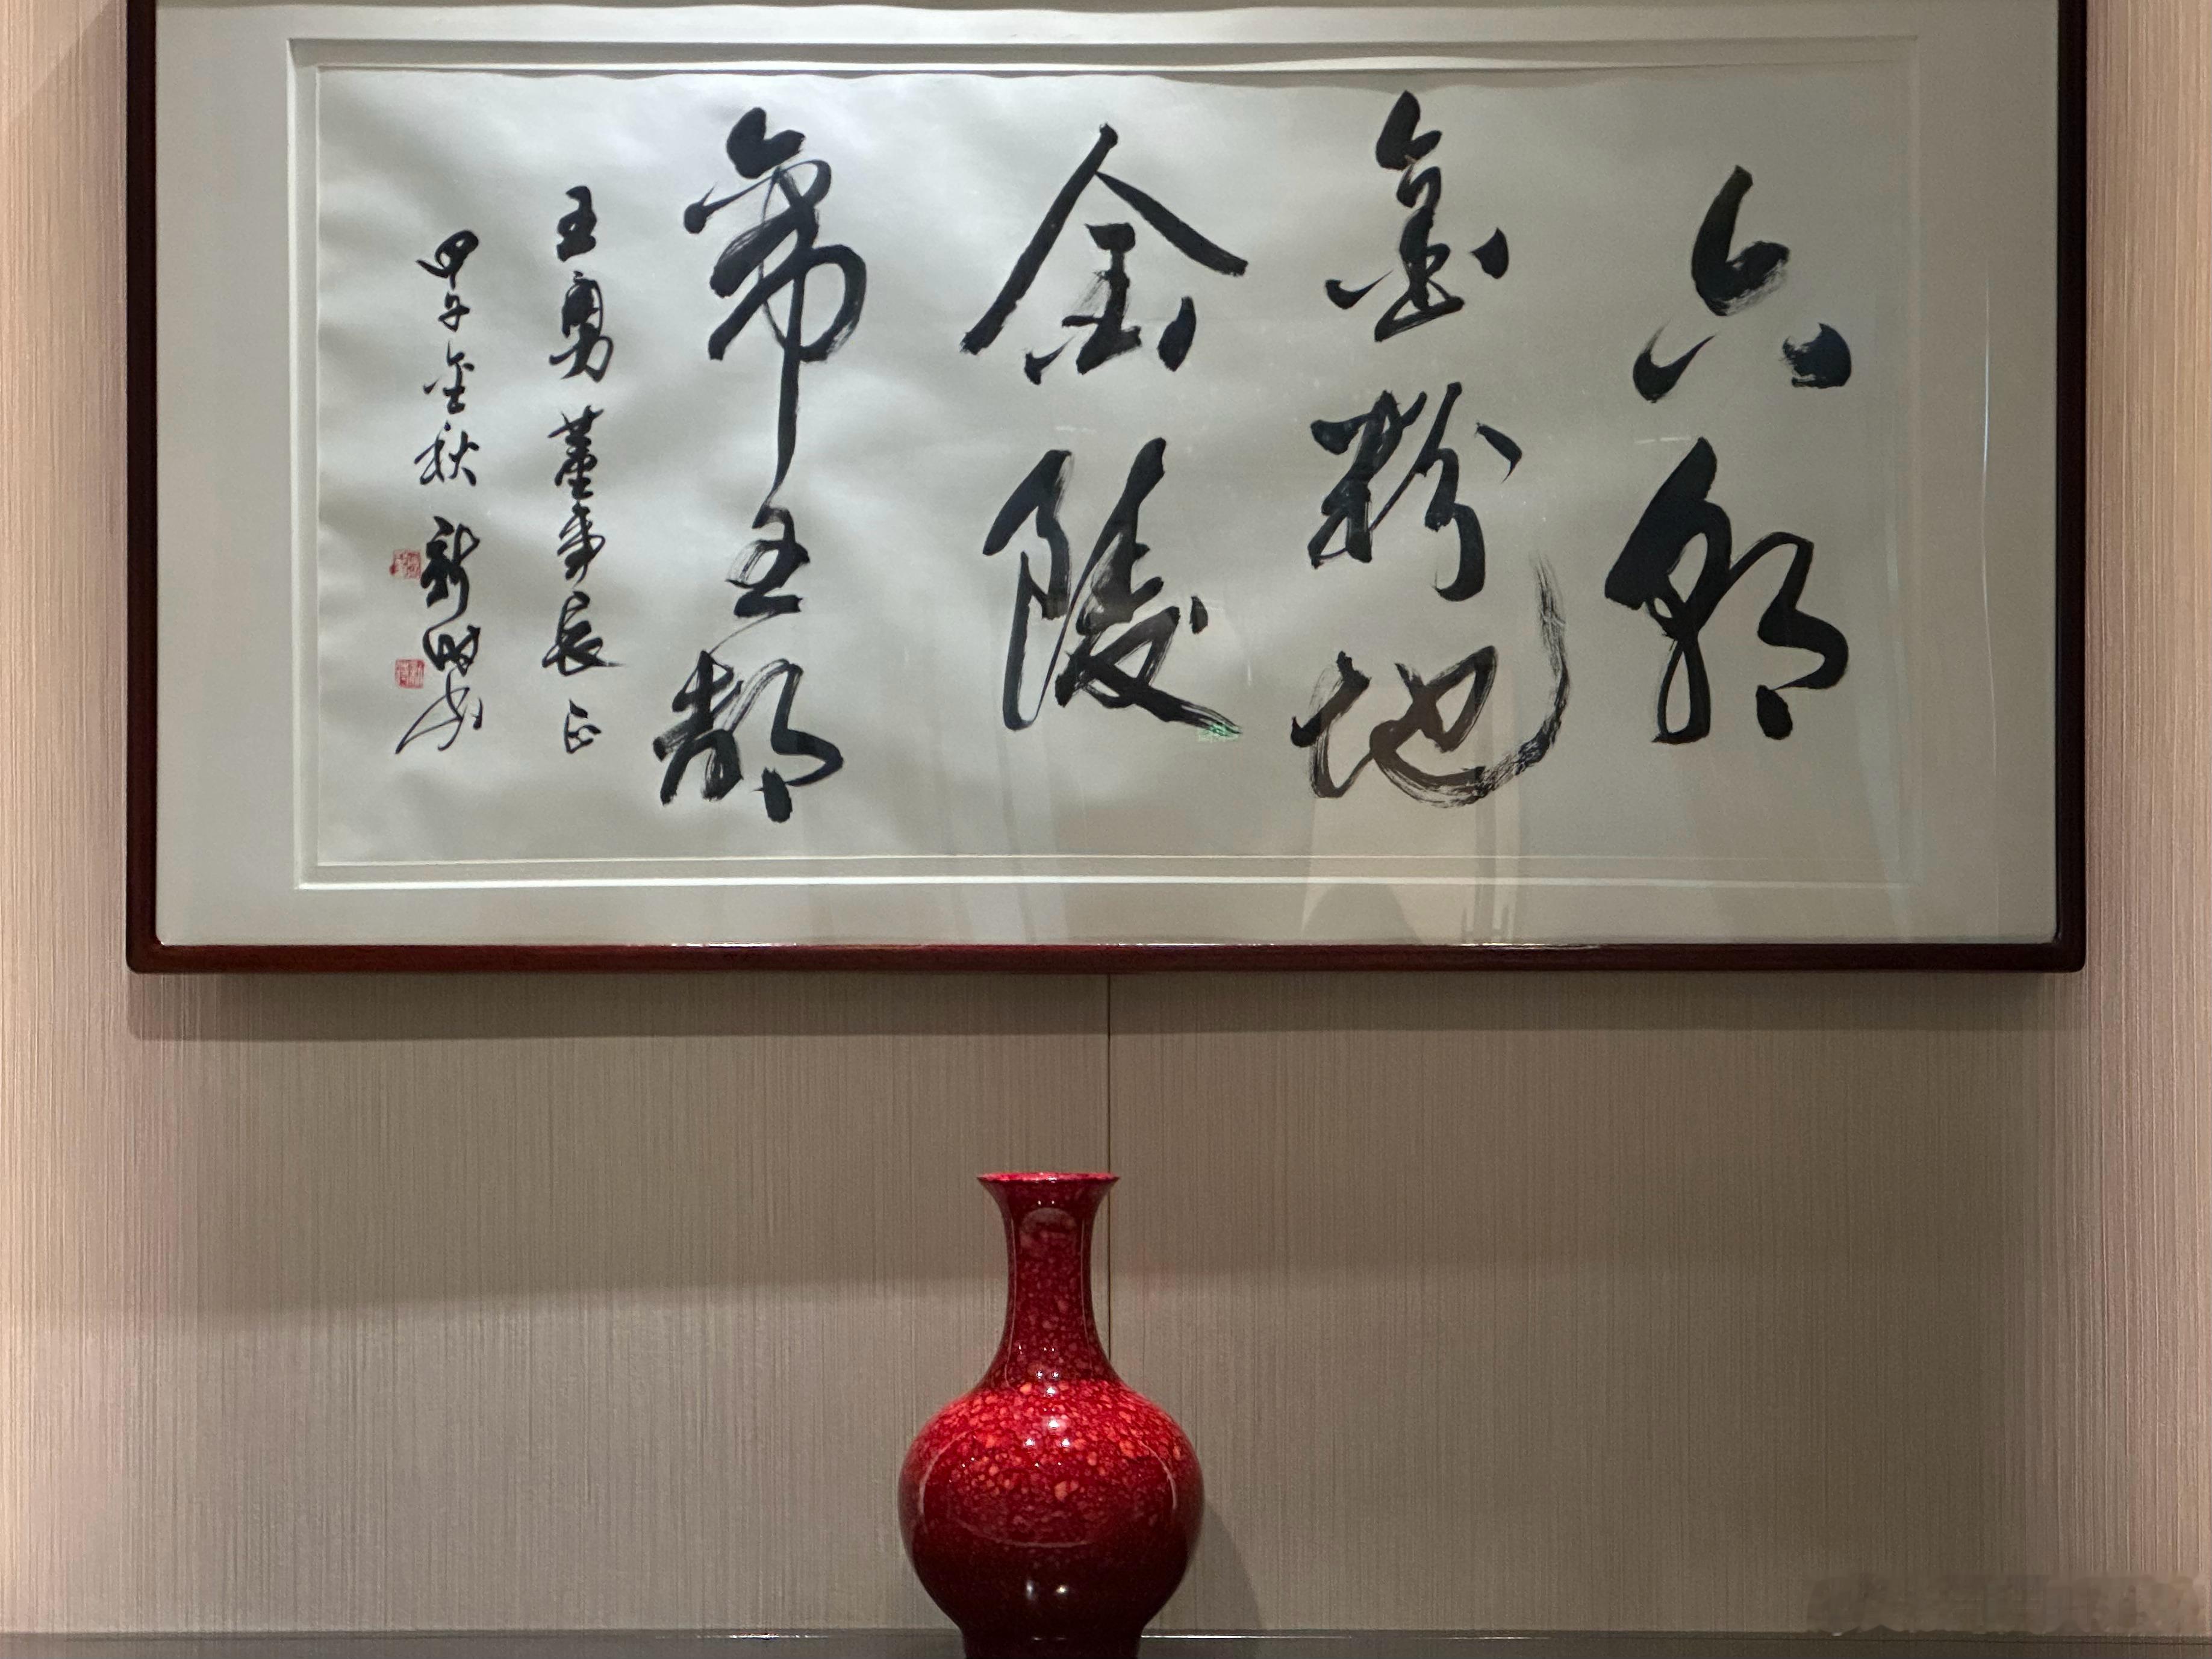 六朝
金粉地
金陵
帝王都
王勇董事长正
甲午金秋新时书